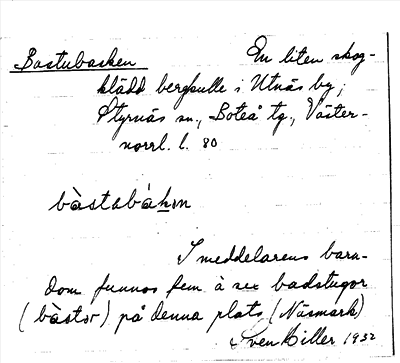 Bastubacken En liten skog-
klädd bergkulle i Utnäs by,
Styrnäs sn., Boteå tg., Väster-
norrl. l. 80
bàstabák̲ɪn
I meddelarens barn-
dom funnos fem à sex badstugor
(bàstɔr) på denna plats (Näsmark)
Sven Hiller 1932